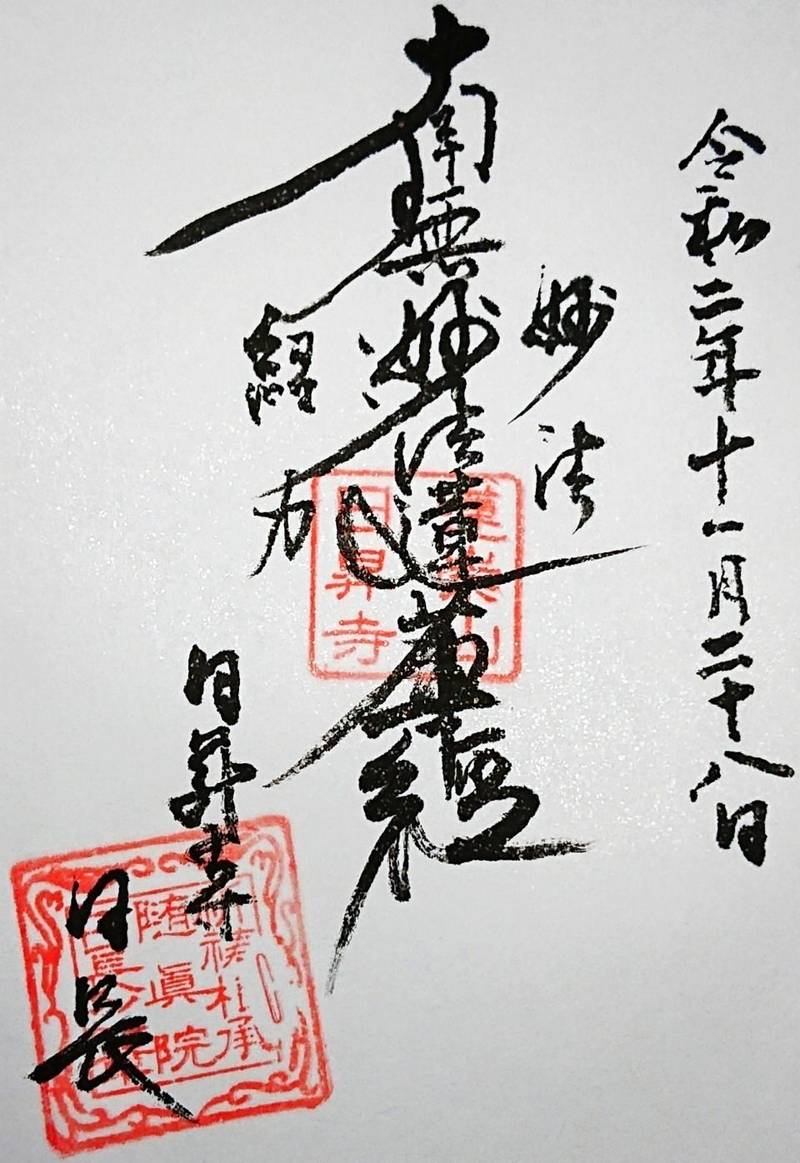 令和二年十一月二十八日
妙法
南無妙法蓮華経
経力
日昇寺
日長
日昇寺
随眞院